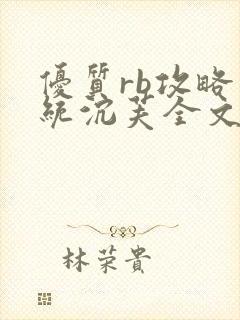 優質rb攻略
統沉芙全文
林荣貴